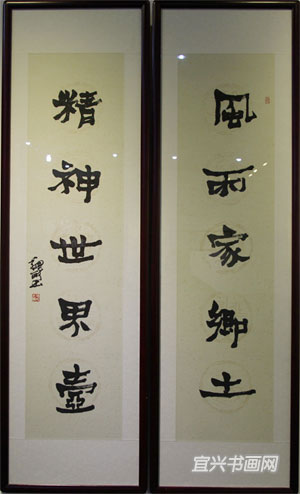 風雨家鄉土
精神世界壺
宜兴书画网